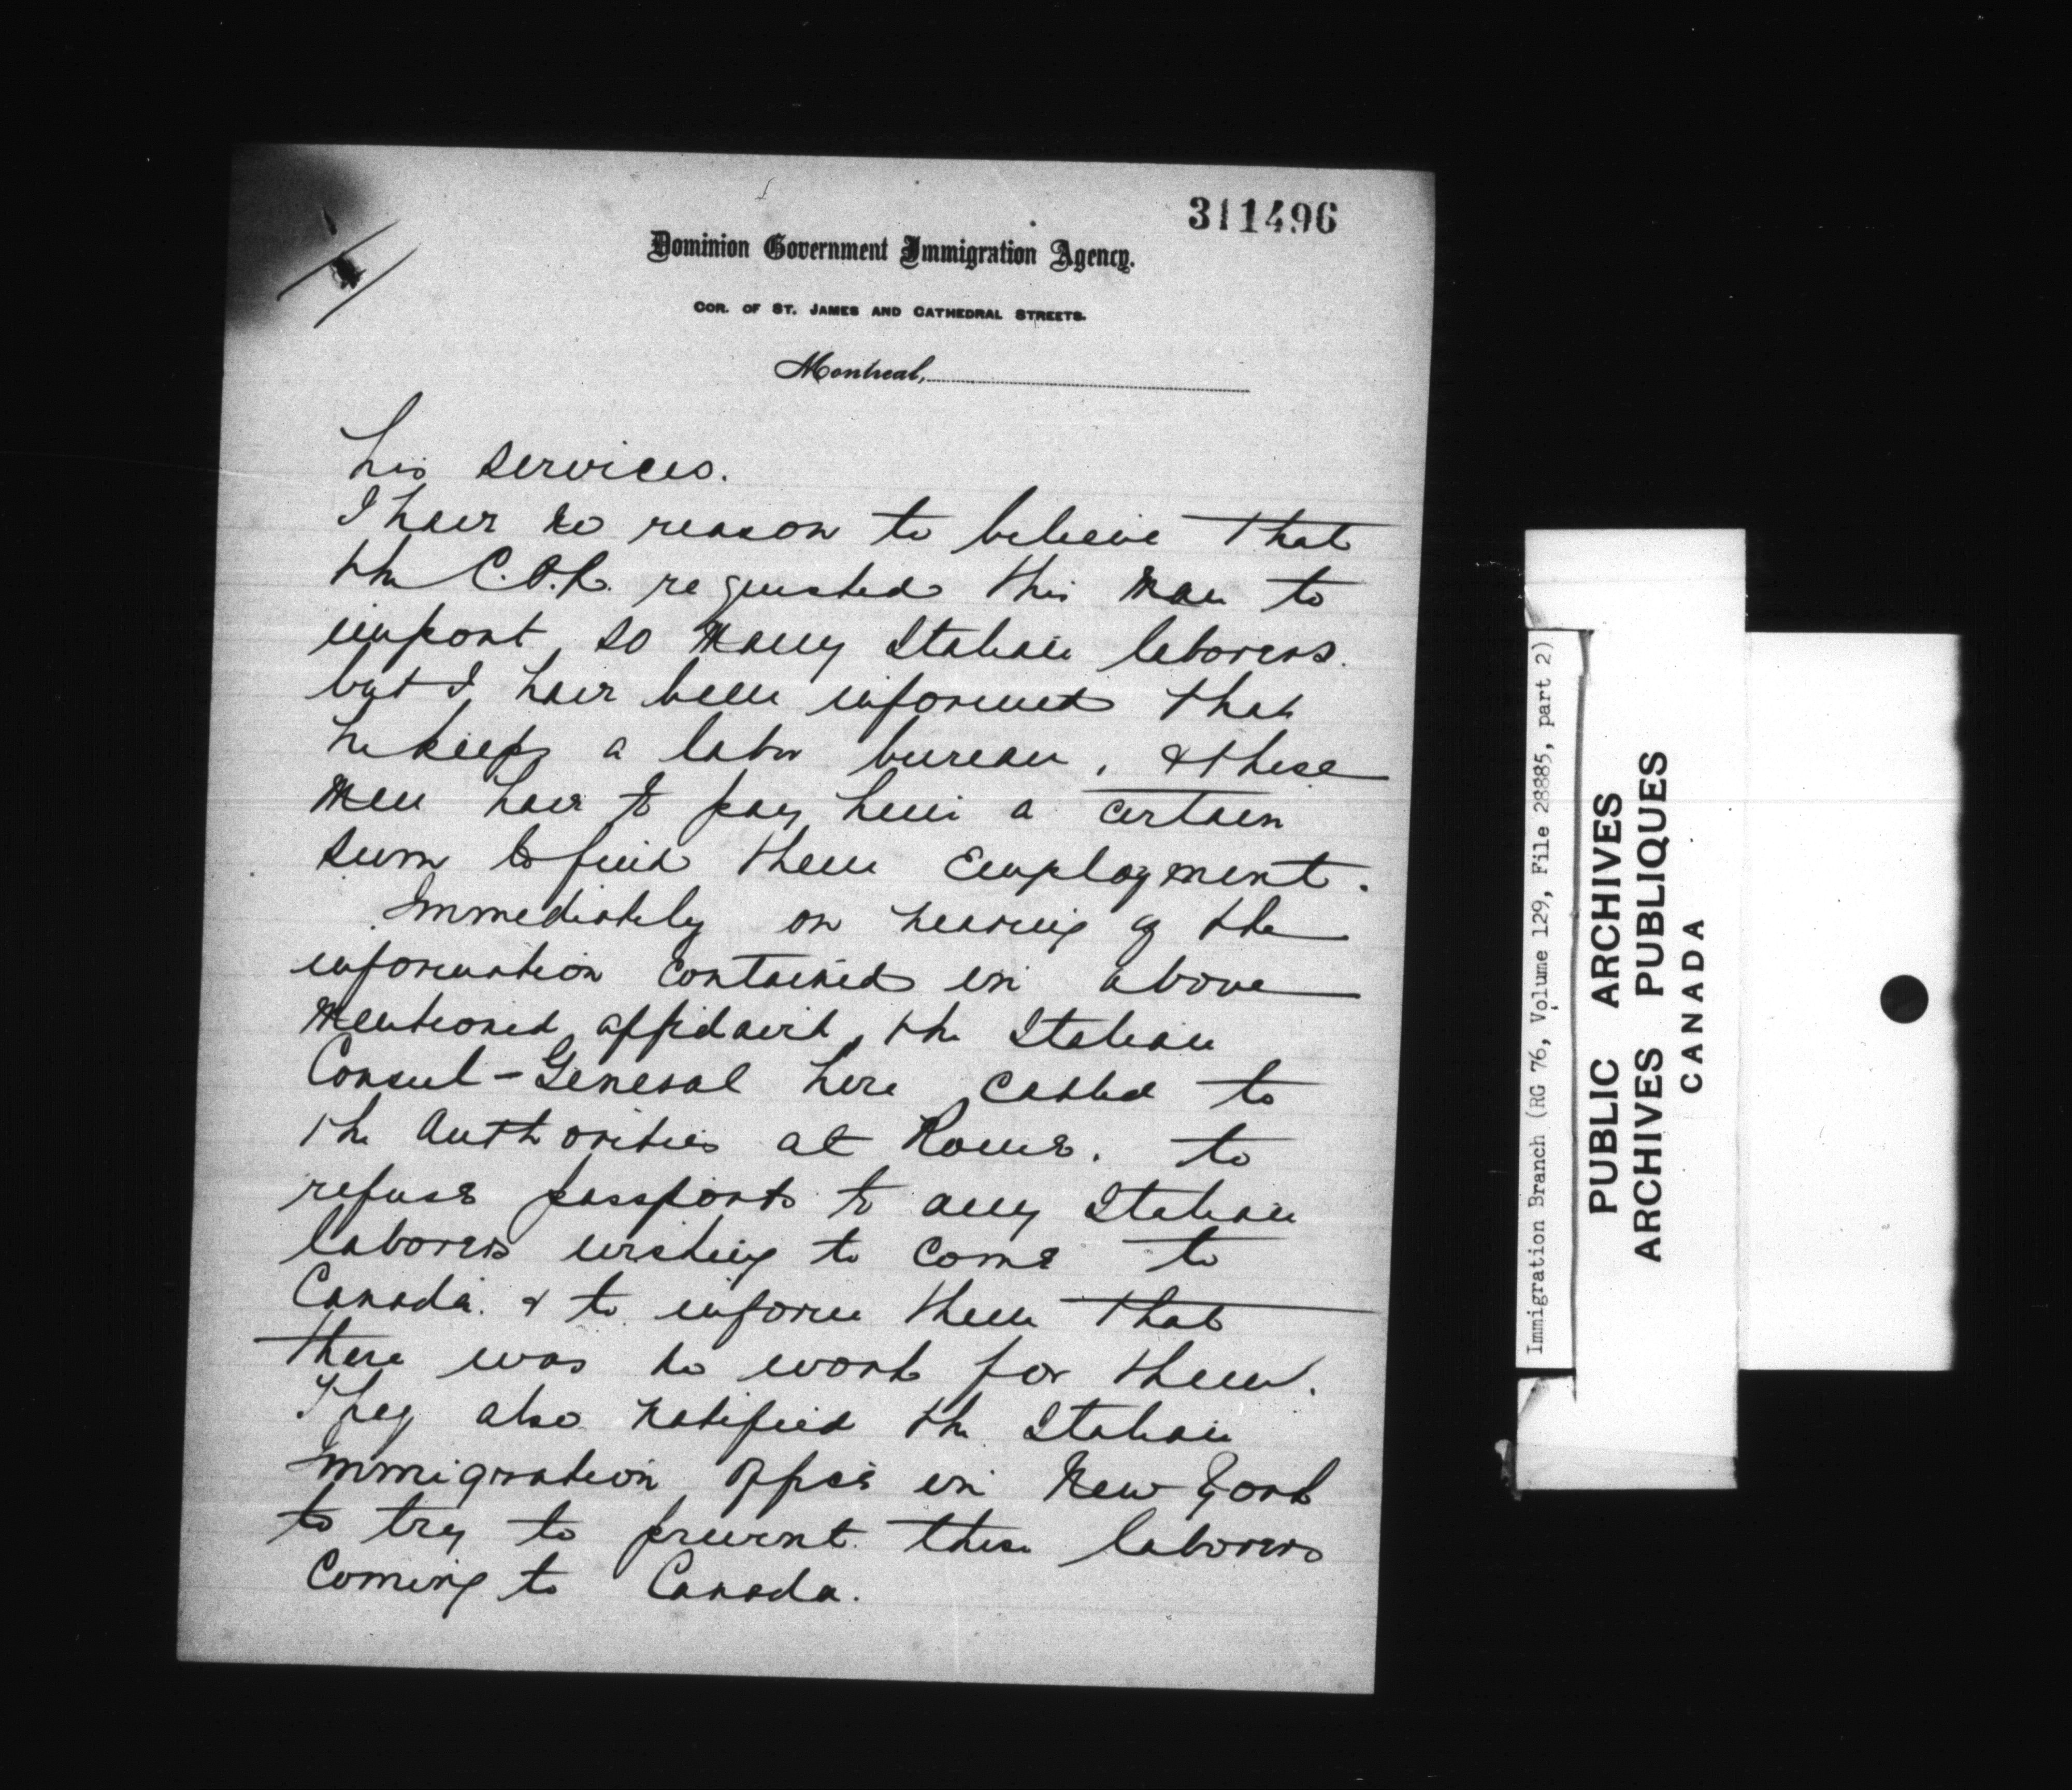 311496
Dominion Government Immigration Agency.
COR. OF ST. JAMES AND CATHEDRAL STREETS.
Montreal,
his services.
I have no reason to believe that
the C.P.R. requested this man to
import so many Italian laborers.
but I have been informed that
he keeps a labor bureau, & these
men have to pay him a certain
sum to find them Employment.
Immediately on hearing of the
information contained in above
mentioned affidavit, the Italian
Consul-General here cabled to
the Authorities at Rome. to
refuse passports to any Italian
laborers wishing to come to
Canada. & to inform them that
there was no work for them.
They also notified the Italian
Immigration Office in New York
to try to prevent these laborers
coming to Canada.
Immigration Branch (RG 76, Volume 129, File 28885, part 2)
PUBLIC ARCHIVES
ARCHIVES PUBLIQUES
CANADA